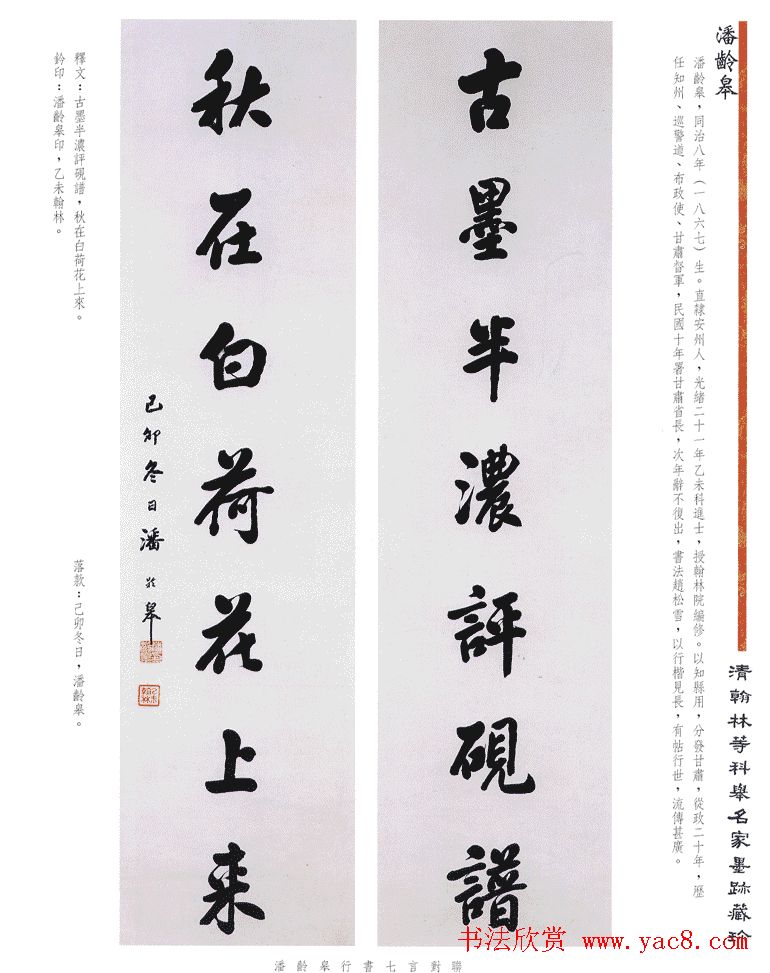 潘齡皋
潘齡皋，同治八年（一八六七）生。直隸安州人，光緒二十一年乙未科進士，授翰林院編修。以知縣用，分發甘肅，從政二十年，歷
任知州、巡警道、布政使、甘肅督軍，民國十年署甘肅省長，次年辭不復出，書法趙松雪，以行楷見長，有帖行世，流傳甚廣。
清翰林等科舉名家墨跡藏珍
古墨半濃評硯譜
秋在白荷花上来
己卯冬日潘齡皋
釋文：古墨半濃評硯譜，秋在白荷花上來。
鈐印：潘齡皋印，乙未翰林。
落款：己卯冬日，潘齡皋。
书法欣赏 www.yac8.com
潘齡皋行書七言對聯